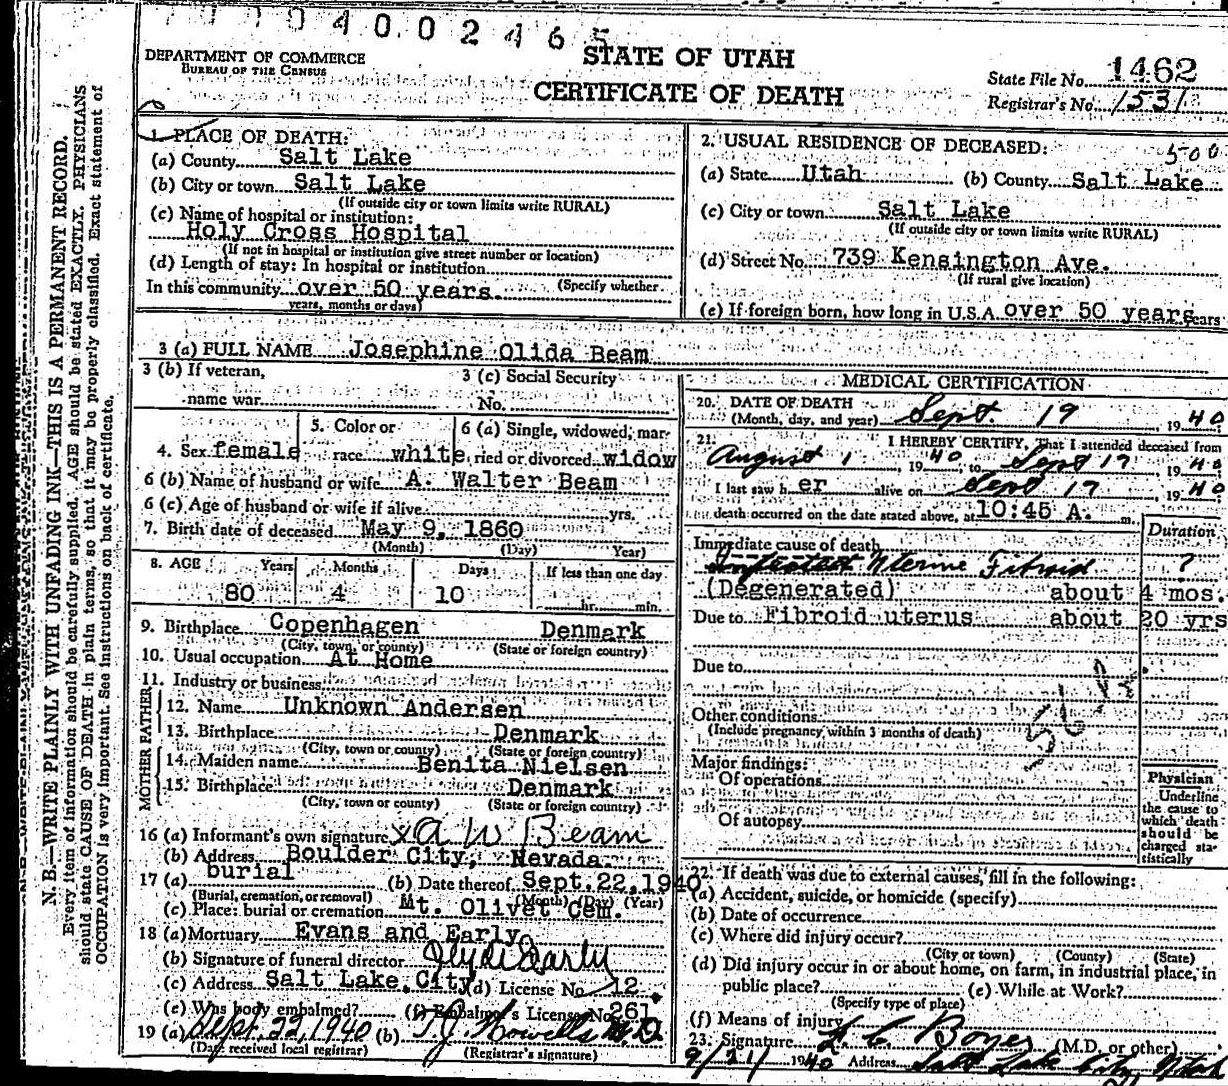 0 4 0 0 2 4 6 5
STATE OF UTAH
CERTIFICATE OF DEATH
DEPARTMENT OF COMMERCE
BUREAU OF THE CENSUS
State File No. 1462
Registrar's No. 1531
N. B.—WRITE PLAINLY WITH UNFADING INK—THIS IS A PERMANENT RECORD.
Every item of information should be carefully supplied. AGE should be stated EXACTLY. PHYSICIANS
should state CAUSE OF DEATH in plain terms, so that it may be properly classified. Exact statement of
OCCUPATION is very important. See instructions on back of certificate.
1. PLACE OF DEATH:
(a) County Salt Lake
(b) City or town Salt Lake
(If outside city or town limits write RURAL)
(c) Name of hospital or institution:
Holy Cross Hospital
(If not in hospital or institution give street number or location)
(d) Length of stay: In hospital or institution
(Specify whether
In this community over 50 years.
years, months or days)
2. USUAL RESIDENCE OF DECEASED:
500
(a) State Utah (b) County Salt Lake
(c) City or town Salt Lake
(If outside city or town limits write RURAL)
(d) Street No. 739 Kensington Ave.
(If rural give location)
(e) If foreign born, how long in U.S.A. over 50 years years
3 (a) FULL NAME Josephine Olida Beam
3 (b) If veteran,
name war
3 (c) Social Security
No.
4. Sex female
5. Color or
race white
6 (a) Single, widowed, mar-
ried or divorced widow
6 (b) Name of husband or wife A. Walter Beam
6 (c) Age of husband or wife if alive yrs.
7. Birth date of deceased May 9, 1860
(Month) (Day) Year)
8. AGE Years Months Days If less than one day
80 4 10 hr. min.
9. Birthplace Copenhagen Denmark
(City, town, or county) (State or foreign country)
10. Usual occupation At Home
11. Industry or business
FATHER
12. Name Unknown Andersen
13. Birthplace Denmark
(City, town or county) (State or foreign country)
MOTHER
14. Maiden name Benita Nielsen
15. Birthplace Denmark
(City, town or county) (State or foreign country)
16 (a) Informant's own signature x A W Beam
(b) Address Boulder City, Nevada.
17 (a) burial (b) Date thereof Sept. 22, 1940
(Burial, cremation, or removal) (Month) (Day) (Year)
(c) Place: burial or cremation Mt. Olivet Cem.
18 (a) Mortuary Evans and Early
(b) Signature of funeral director Clyde Early
(c) Address Salt Lake City (d) License No. 12
(e) Was body embalmed? (f) Embalmer's License No. 261
19 (a) Sept. 22, 1940 (b) T. J. Howells M.D.
(Date received local registrar) (Registrar's signature)
MEDICAL CERTIFICATION
20. DATE OF DEATH
(Month, day, and year) Sept. 19, 1940
21. I HEREBY CERTIFY, That I attended deceased from
August 1, 1940, to Sept 17, 1940
I last saw her alive on Sept 17, 1940
death occurred on the date stated above, at 10:45 A. m.
Duration
Immediate cause of death
Infected Uterine Fibroid ?
(Degenerated) about 4 mos.
Due to Fibroid uterus about 20 yrs
Due to
Other conditions
(Include pregnancy within 3 months of death)
Major findings:
Of operations
Of autopsy
Physician
Underline
the cause to
which death
should be
charged sta-
tistically
22. If death was due to external causes, fill in the following:
(a) Accident, suicide, or homicide (specify)
(b) Date of occurrence
(c) Where did injury occur?
(City or town) (County) (State)
(d) Did injury occur in or about home, on farm, in industrial place, in
public place? (e) While at Work?
(Specify type of place)
(f) Means of injury
23. Signature (M.D. or other)
9/21/ 1940 Address Salt Lake City, Utah